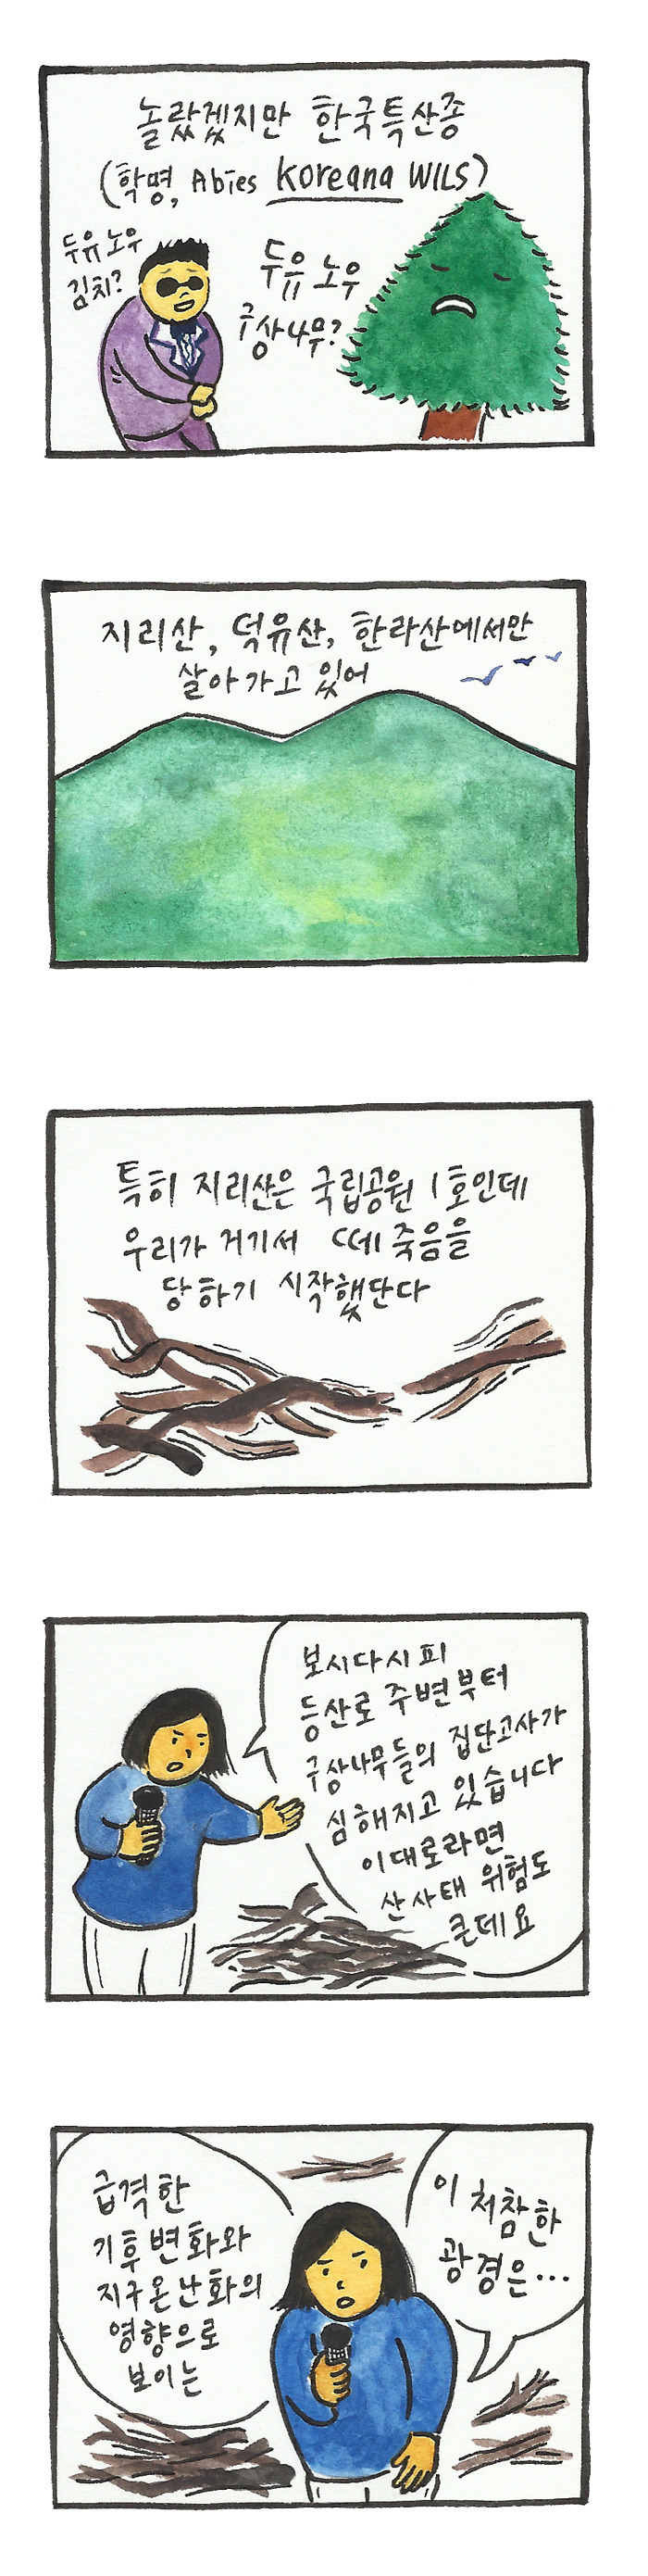 놀랐겠지만 한국특산종
(학명, Abies Koreana WILS)
두유노우
김치?
두유 노우
구상나무?
지리산, 덕유산, 한라산에서만
살아가고 있어
특히 지리산은 국립공원 1호인데
우리가 거기서 떼죽음을
당하기 시작했단다
보시다시피
등산로 주변부터
구상나무들의 집단고사가
심해지고 있습니다
이대로라면
산사태 위험도
큰데요
급격한
기후변화와
지구온난화의
영향으로
보이는
이 처참한
광경은...